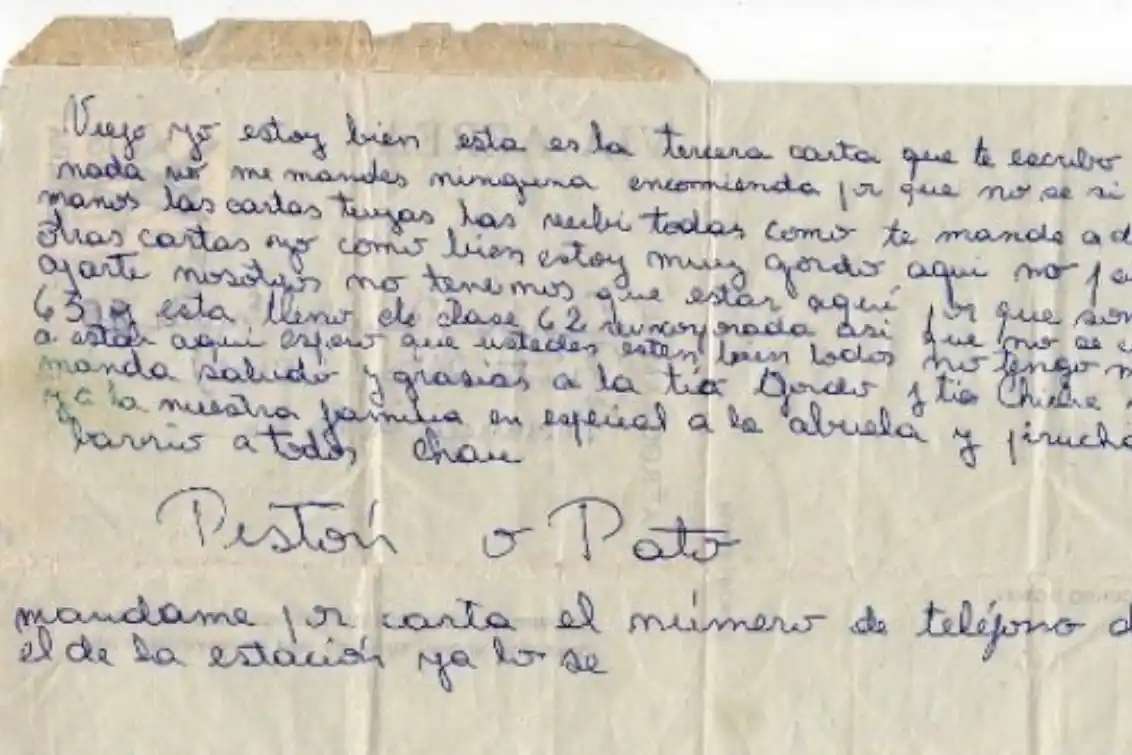 Viejo yo estoy bien esta es la tercera carta que te escribo
nada no me mandes ninguna encomienda por que no se si
manos las cartas tuyas las recibi todas como te mande a d
otras cartas yo como bien estoy muy gordo aqui no
nosotros no tenemos que estar aquí por que som
63 y esta lleno de clase 62 reincorporada asi que no se
a estar aqui espero que ustedes esten bien todos no tengo
manda saludo y grasias a la tia Gordo y tia
y a la nuestra familia en especial a la abuela y
barrio a todos chau
Pistón o Pato
mandame por carta el número de teléfono d
el de la estación ya lo se